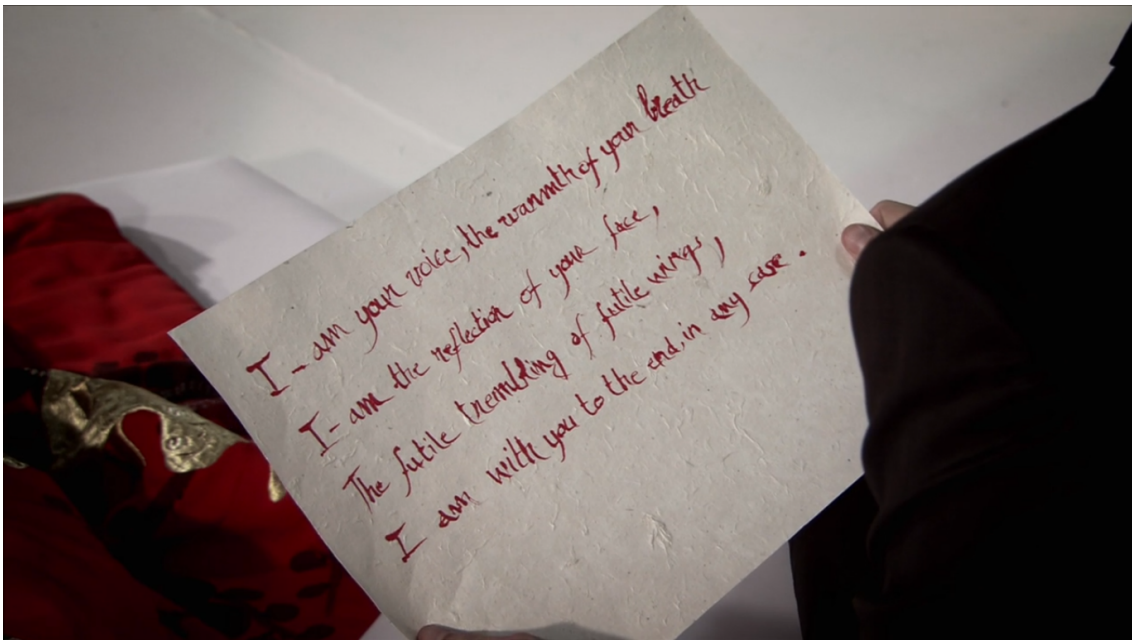 I - am your voice, the warmth of your breath
I - am the reflection of your face,
The futile trembling of futile wings,
I am with you to the end, in any case.